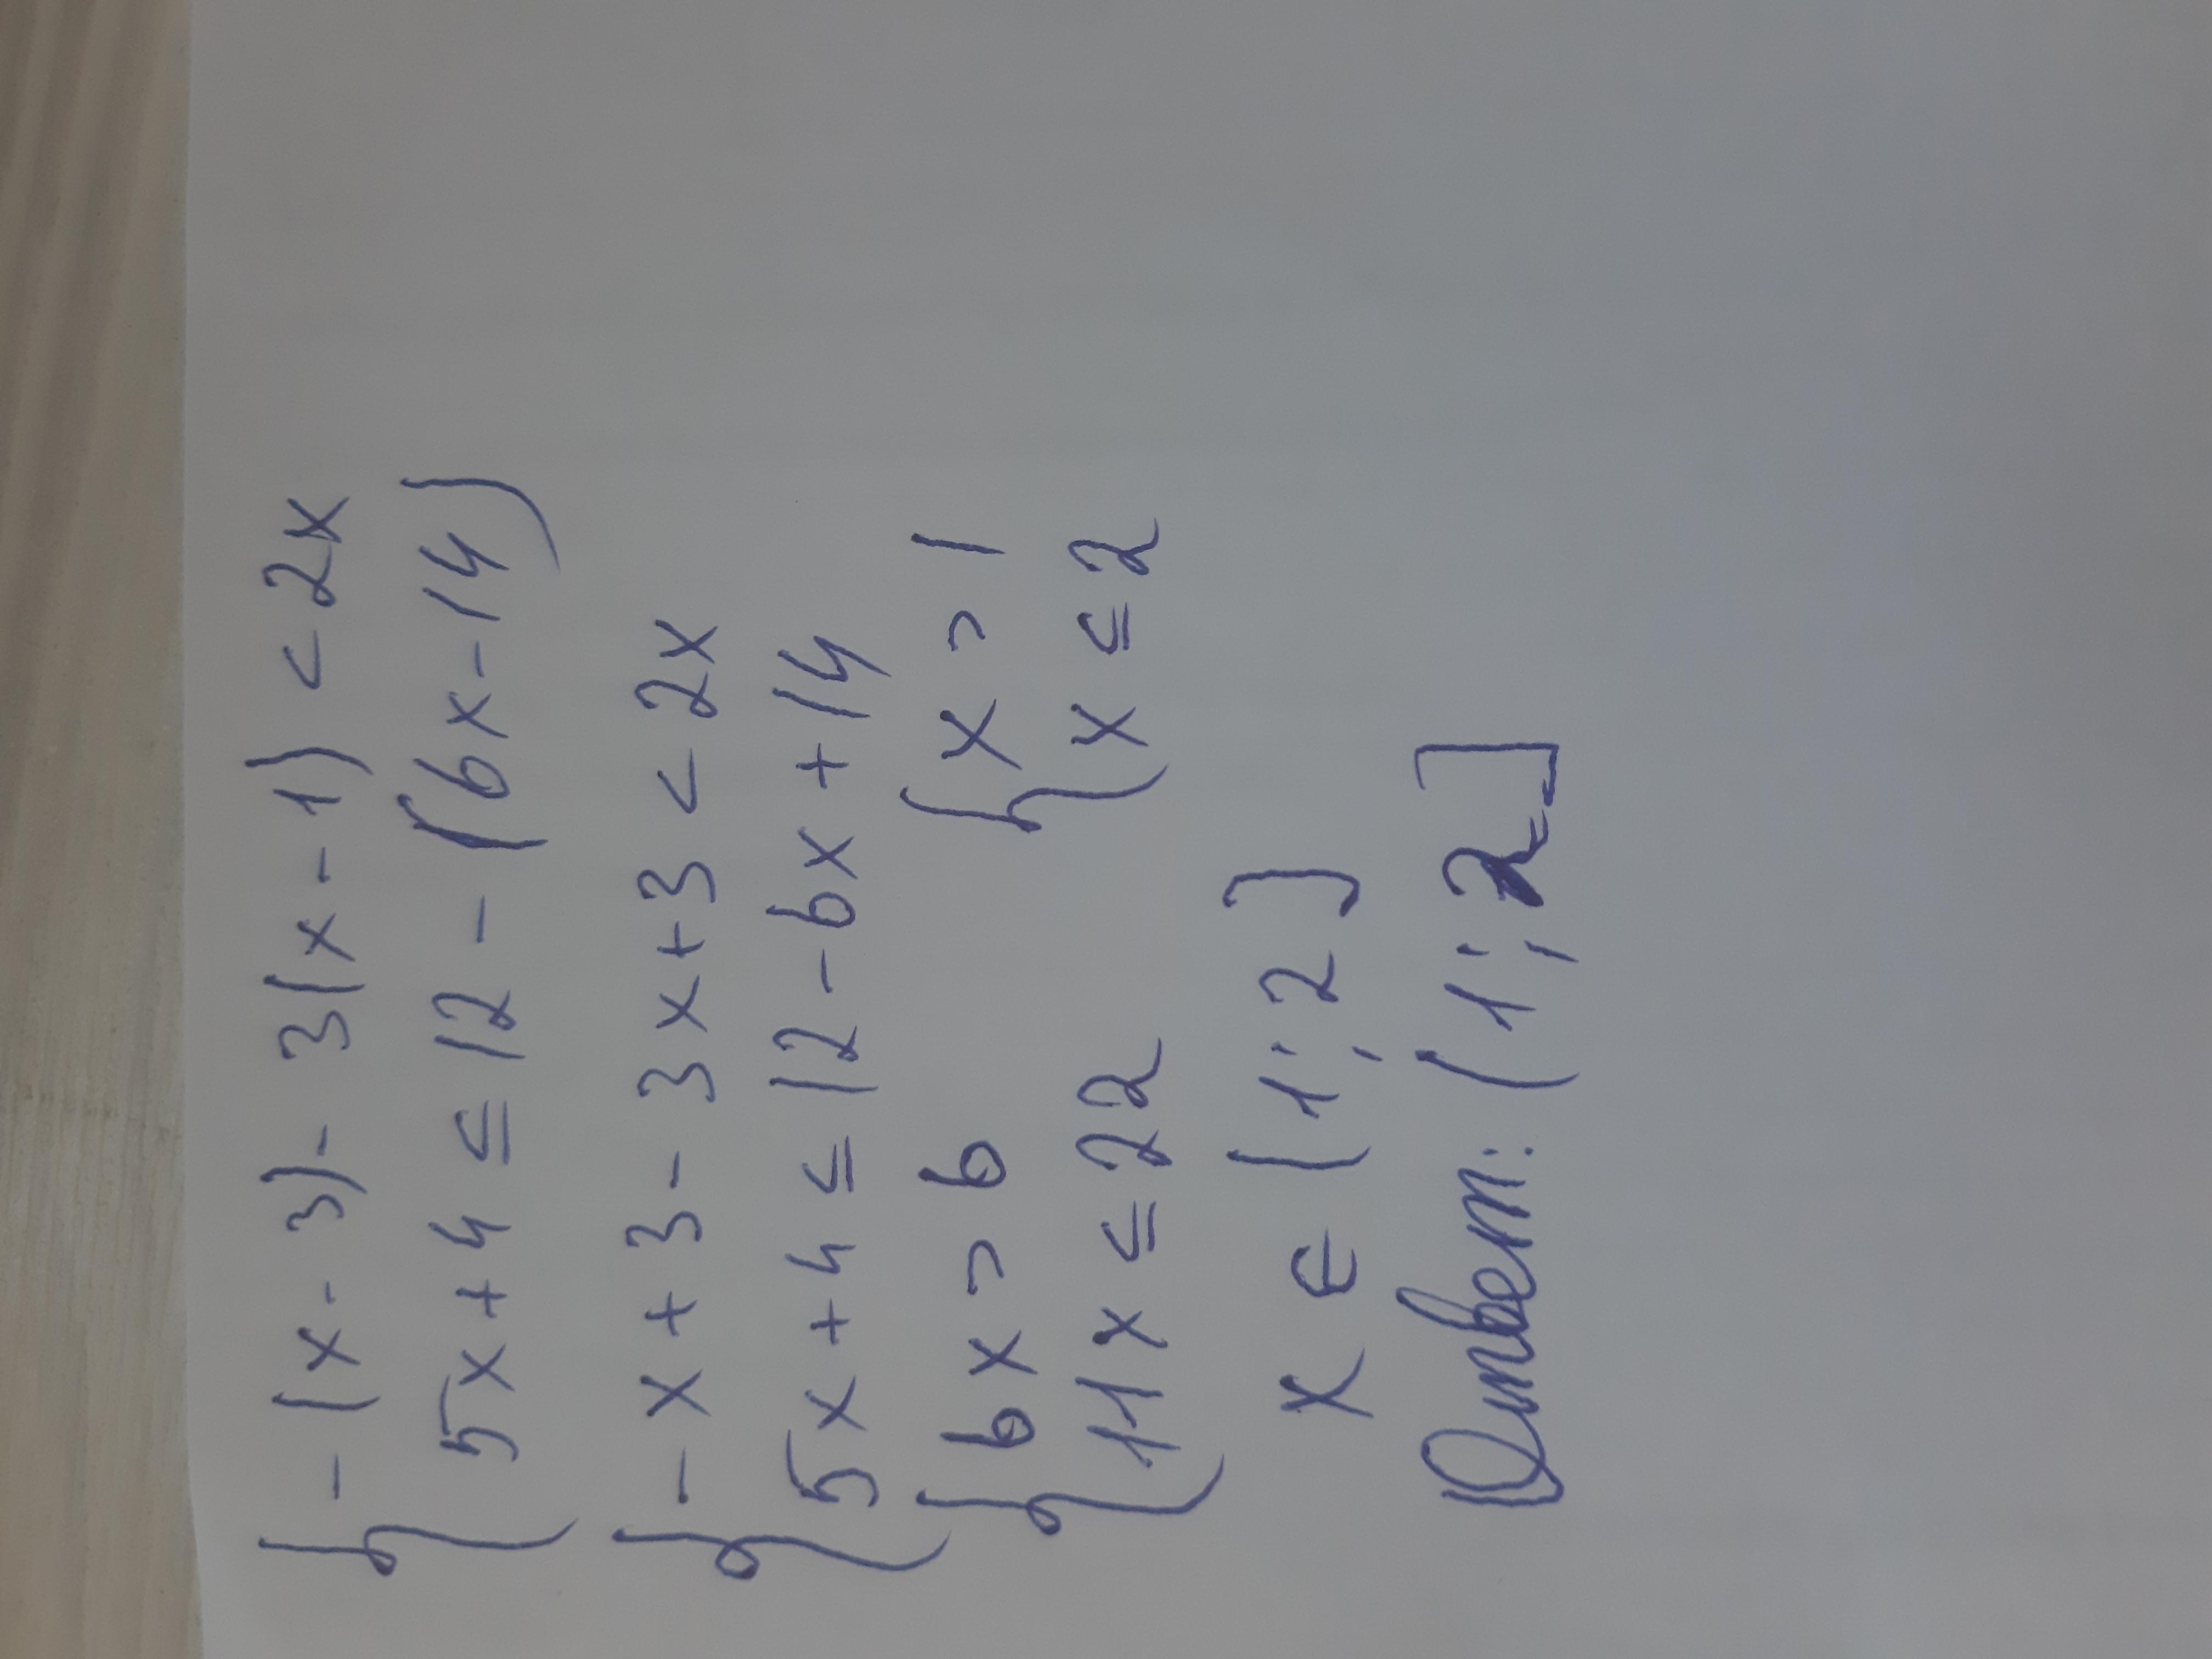 { -(x-3)-3(x-1) < 2x
5x+4 ≤ 12-(6x-14)
{ -x+3-3x+3 < 2x
5x+4 ≤ 12-6x+14
{ 6x > 6 { x > 1
11x ≤ 22 x ≤ 2
x ∈ (1; 2]
Ответ: (1; 2]